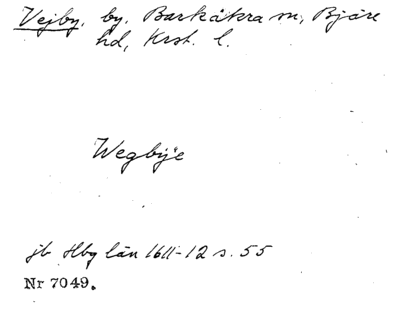 Vejby, by, Barkåkra sn, Bjäre
hd, Krst. l.
Wegbÿe
jb Hbg län 1611-12 s. 55
Nr 7049.